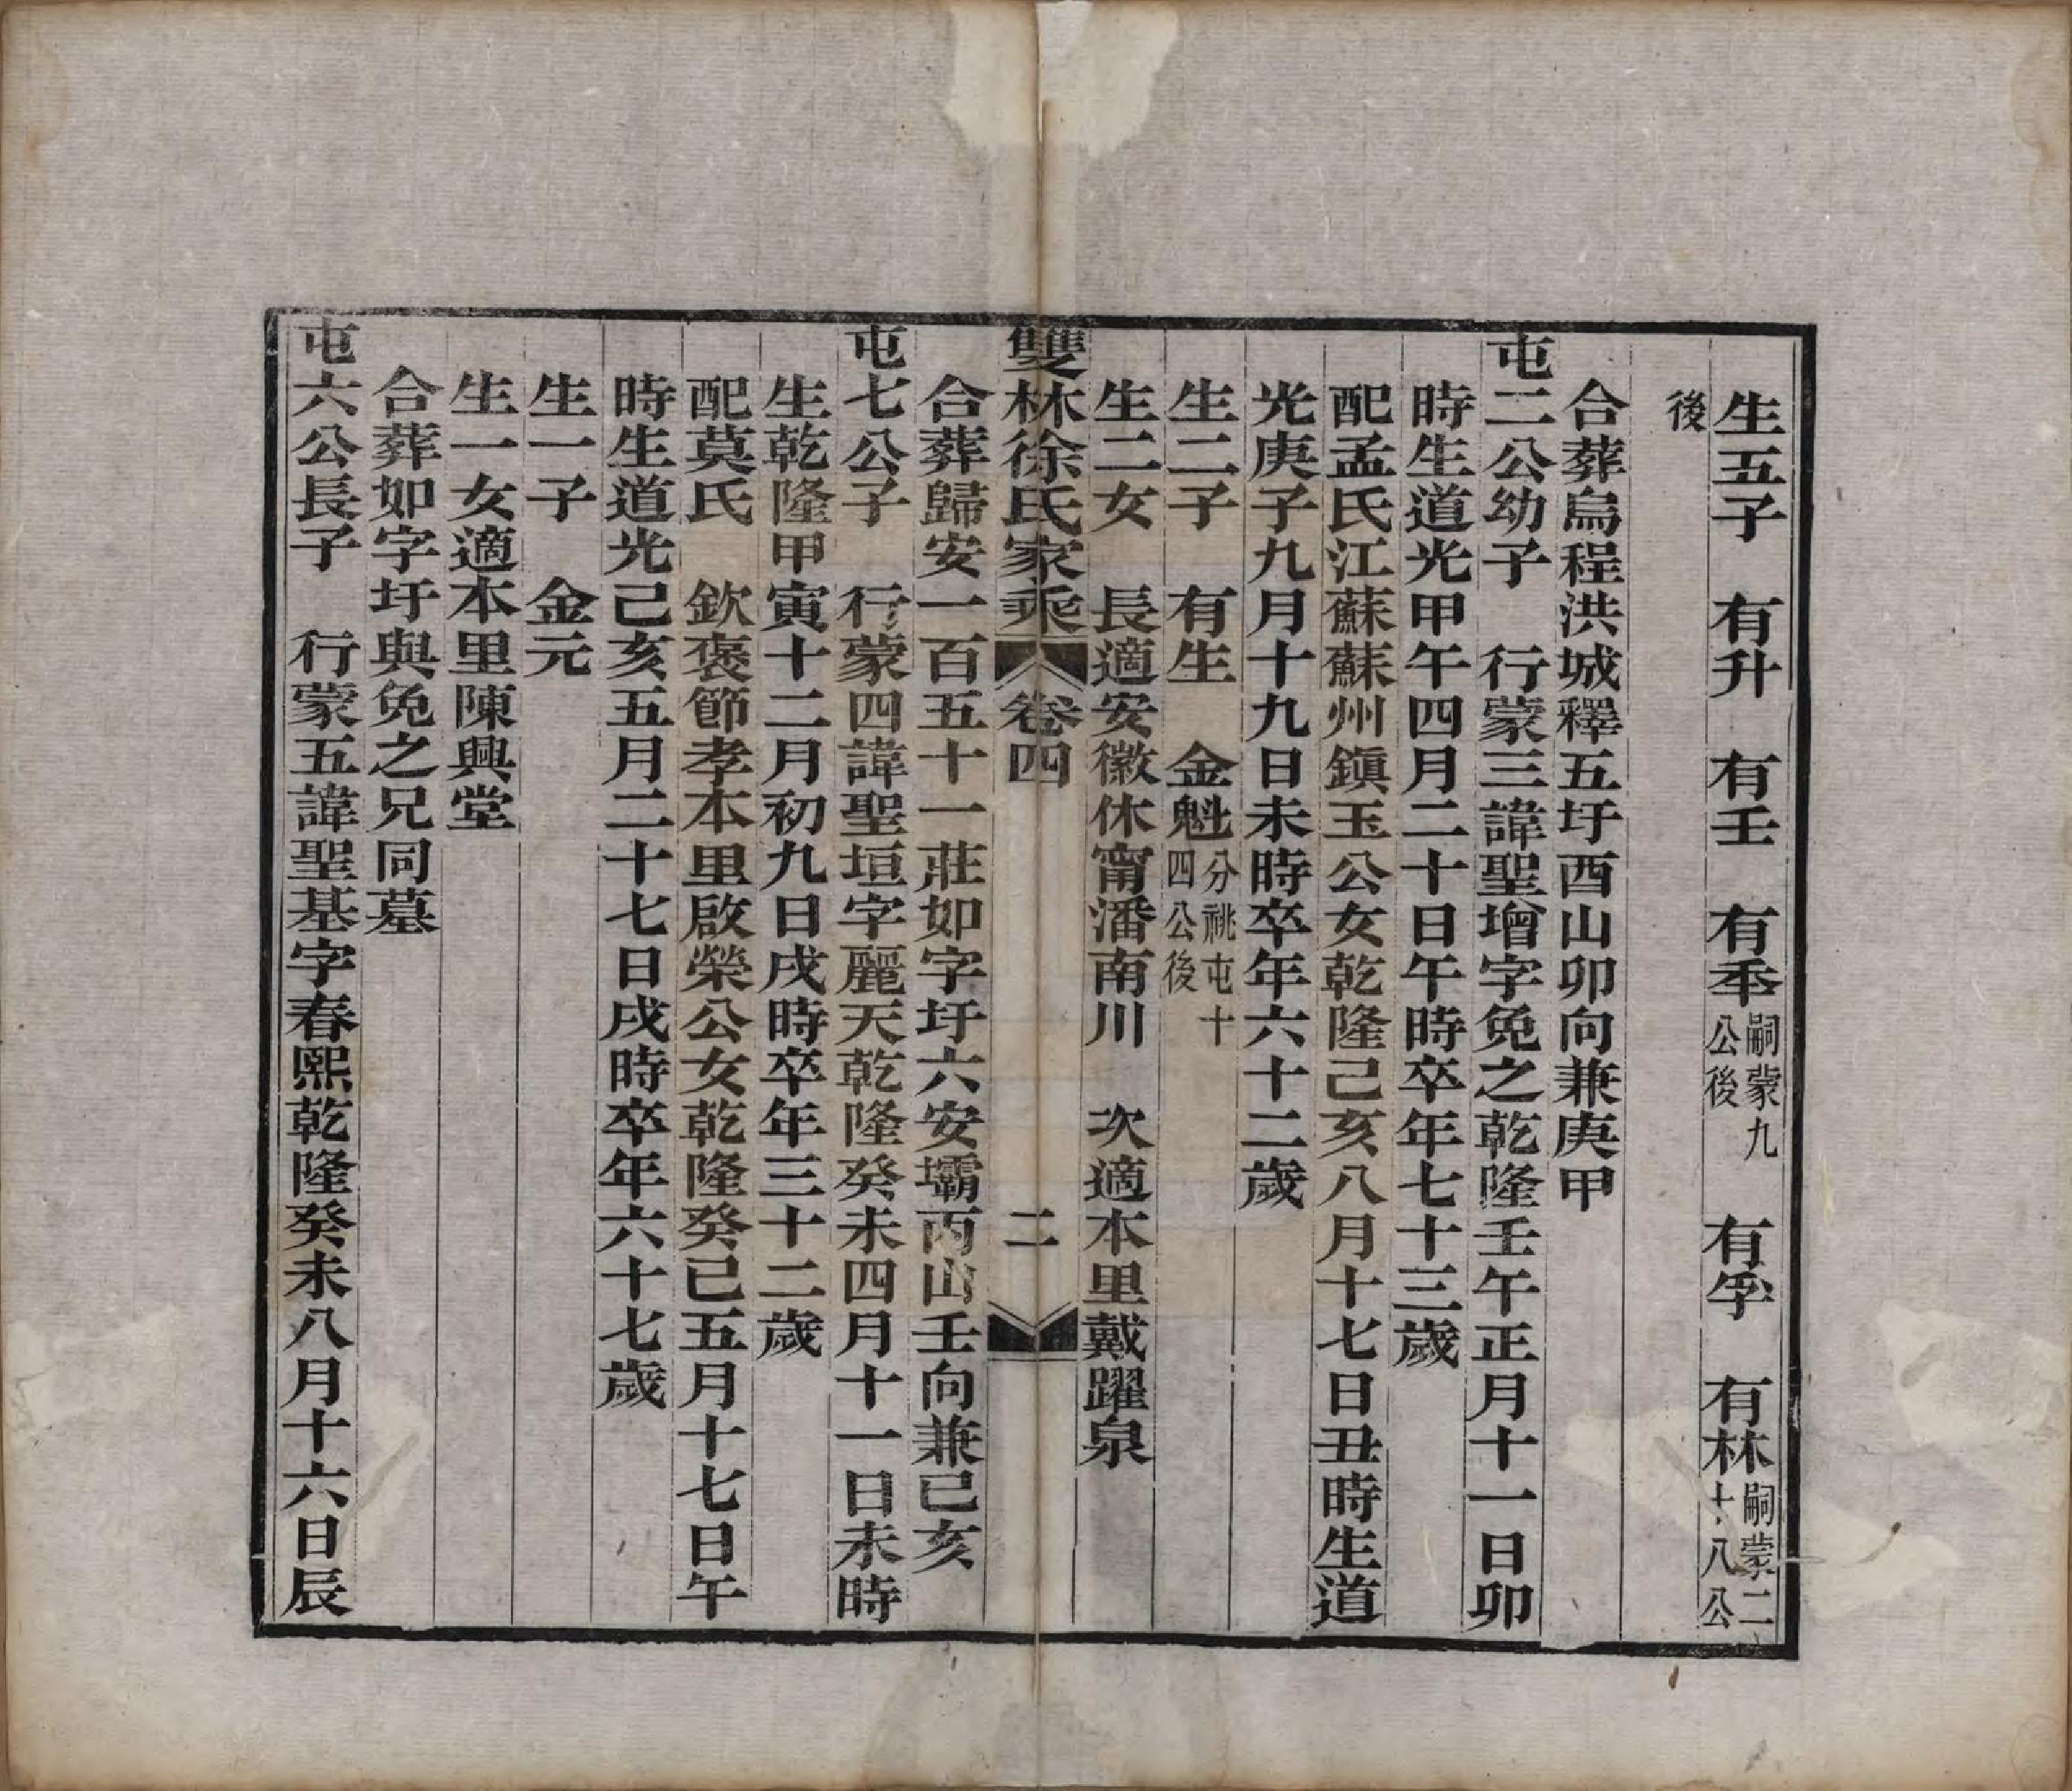 生五子　有升　有壬　有秊嗣蒙九公後　有孚　有林嗣蒙二十八公
後
合葬烏程洪城釋五圩酉山卯向兼庚甲
屯二公幼子　行蒙三諱聖增字免之乾隆壬午正月十一日卯
時生道光甲午四月二十日午時卒年七十三歲
配孟氏江蘇蘇州鎭玉公女乾隆己亥八月十七日丑時生道
光庚子九月十九日未時卒年六十二歲
生二子　有生　金魁分祧屯十四公後
生二女　長適安徽休甯潘南川　次適本里戴躍泉
雙林徐氏家乘　卷四　二
合葬歸安一百五十一莊如字圩六安壩丙山壬向兼己亥
屯七公子　行蒙四諱聖垣字麗天乾隆癸未四月十一日未時
生乾隆甲寅十二月初九日戌時卒年三十二歲
配莫氏　欽褒節孝本里啟榮公女乾隆癸巳五月十七日午
時生道光己亥五月二十七日戌時卒年六十七歲
生一子　金元
生一女適本里陳興堂
合葬如字圩與免之兄同墓
屯六公長子　行蒙五諱聖基字春熙乾隆癸未八月十六日辰